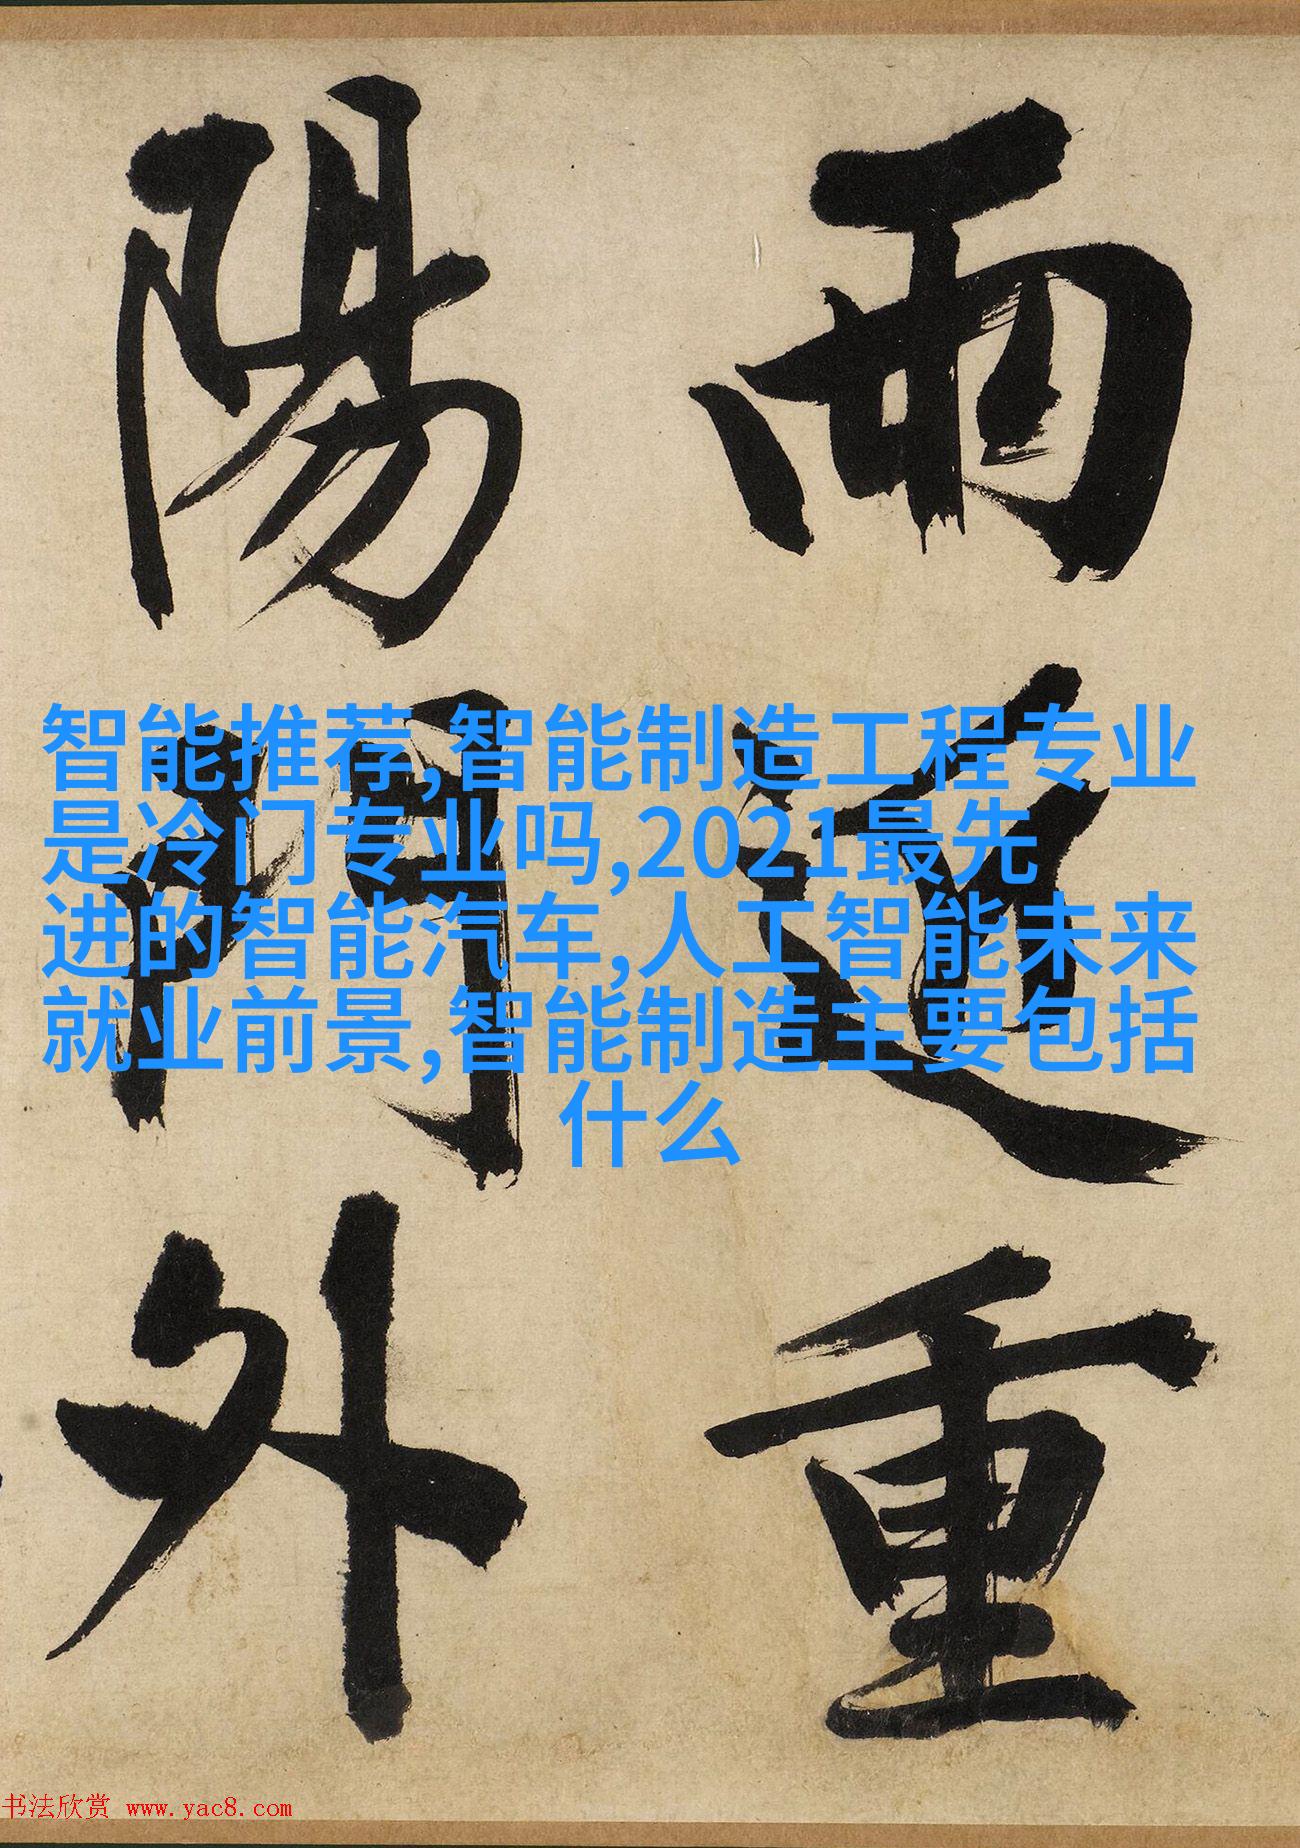 雨近重
陽門外
智能推荐,智能制造工程专业
是冷门专业吗,2021最先
进的智能汽车,人工智能未来
就业前景,智能制造主要包括
什么
书法欣赏 www.yac8.com